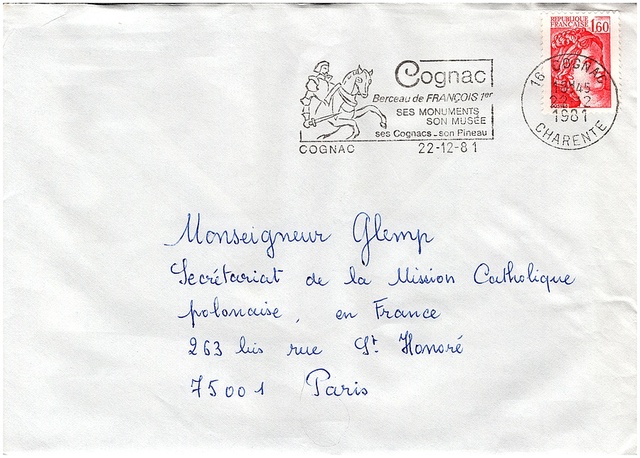 REPUBLIQUE
FRANÇAISE 1,60
Cognac
Berceau de FRANÇOIS 1er
SES MONUMENTS
SON MUSÉE
ses Cognacs - son Pineau
COGNAC 22-12-81
16 COGNAC
1981
CHARENTE
Monseigneur Glemp
Secrétariat de la Mission Catholique
polonaise, en France
263 bis rue St Honoré
75001 Paris